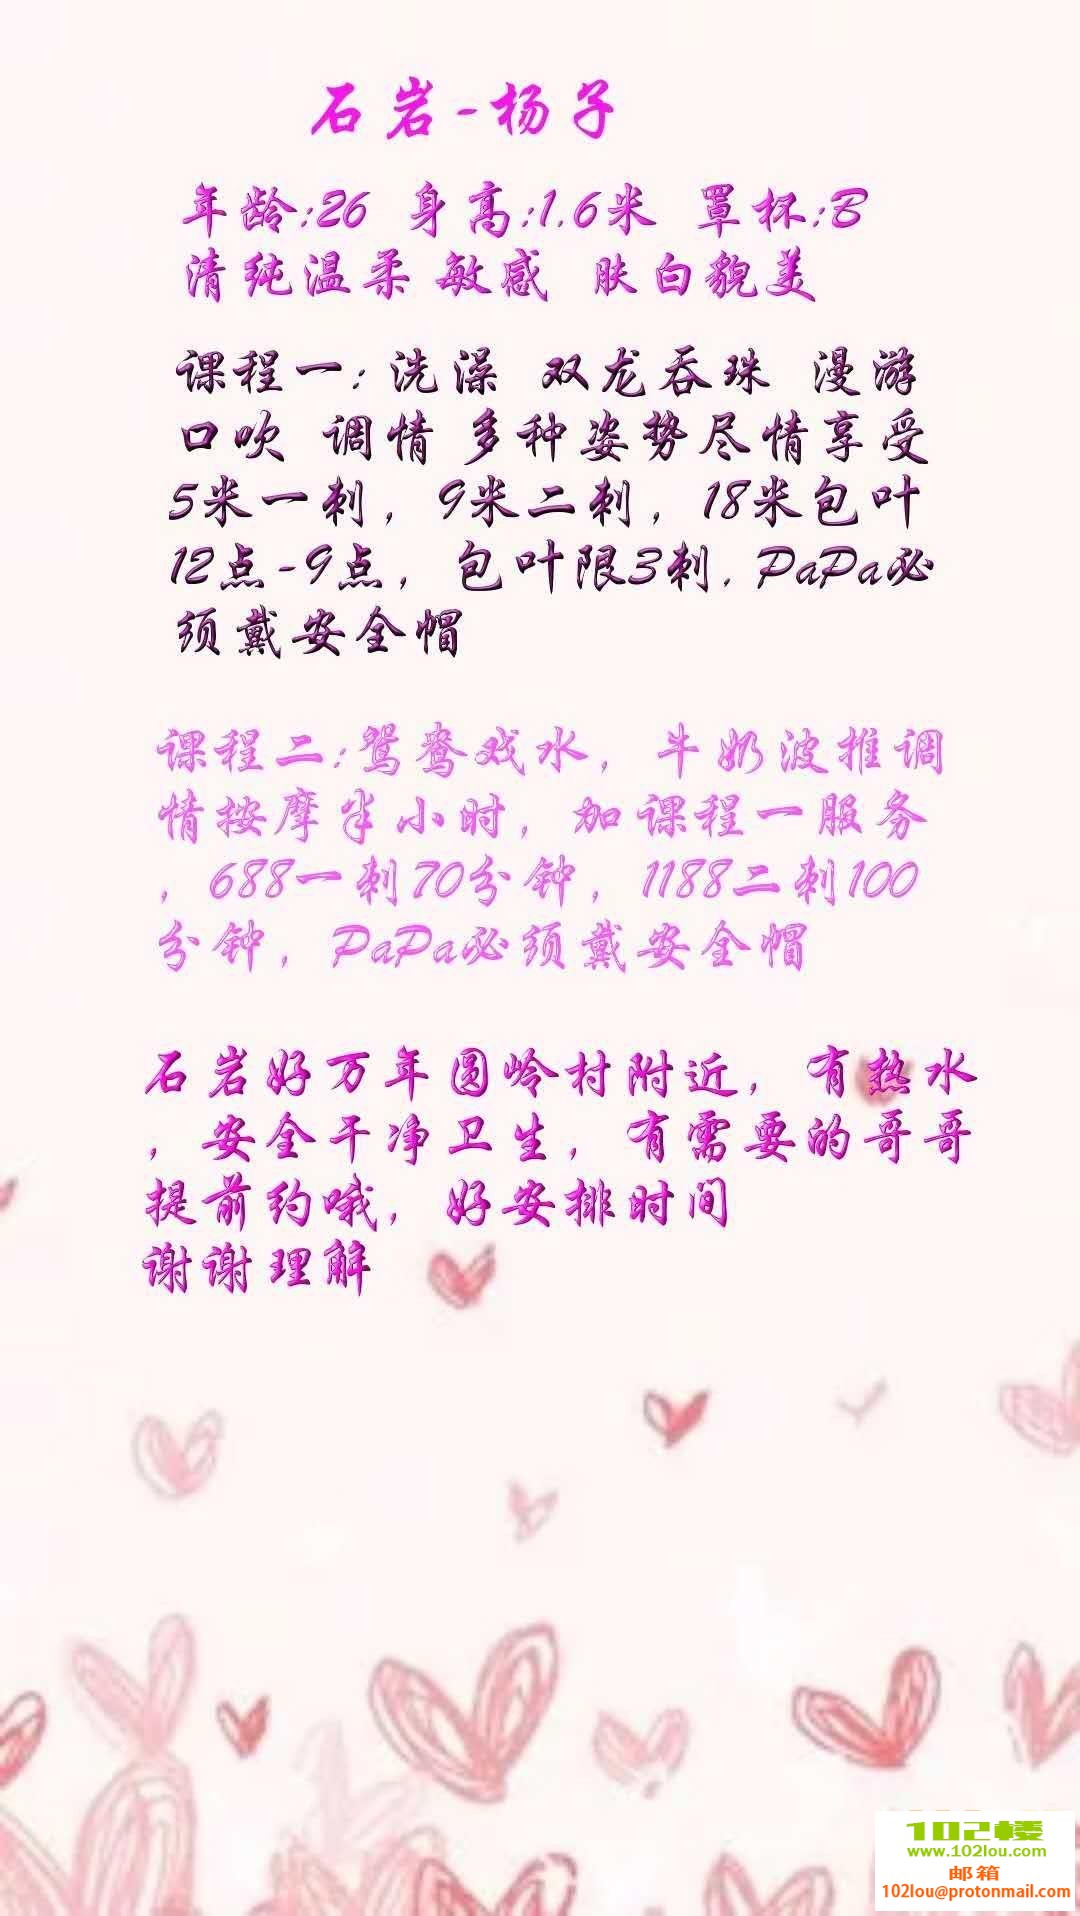 石岩-杨子
年龄:26 身高:1.6米 罩杯:B
清纯温柔 敏感 肤白貌美
课程一: 洗澡 双龙吞珠 漫游
口吹 调情 多种姿势尽情享受
5米一刺，9米二刺，18米包叶
12点-9点，包叶限3刺. PaPa必
须戴安全帽
课程二:鸳鸯戏水，牛奶波推调
情按摩半小时，加课程一服务
，688一刺70分钟，1188二刺100
分钟，PaPa必须戴安全帽
石岩好万年圆岭村附近，有热水
，安全干净卫生，有需要的哥哥
提前约哦，好安排时间
谢谢理解
102楼
www.102lou.com
邮箱
102lou@protonmail.com